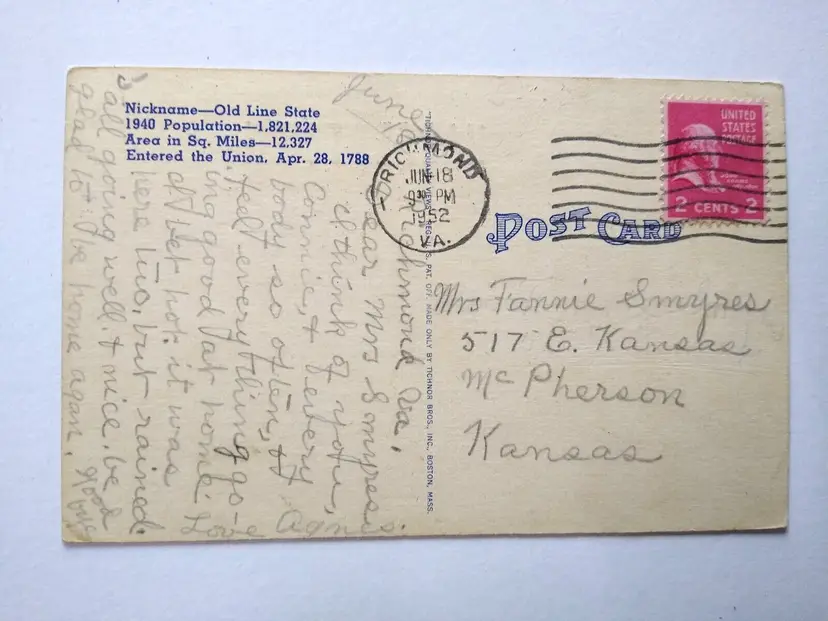 Nickname—Old Line State
1940 Population—1,821,224
Area in Sq. Miles—12,327
Entered the Union, Apr. 28, 1788
June 18
Richmond Va,
Dear Mrs Smyres:
I think of you,
Connie, & every
body so often, &
feel everything go-
ing good at home.
hot. it was
here too, but rained.
all going well, & nice, be
glad to be home again.
Love
Agnes
RICHMOND
JUN 18
9 30 PM
1952
VA.
UNITED
STATES
POSTAGE
JOHN
ADAMS
2 CENTS 2
POST CARD
Mrs Fannie Smyres
517 E. Kansas
McPherson
Kansas
REG. U.S. PAT. OFF. MADE ONLY BY TICHNOR BROS., INC., BOSTON, MASS.